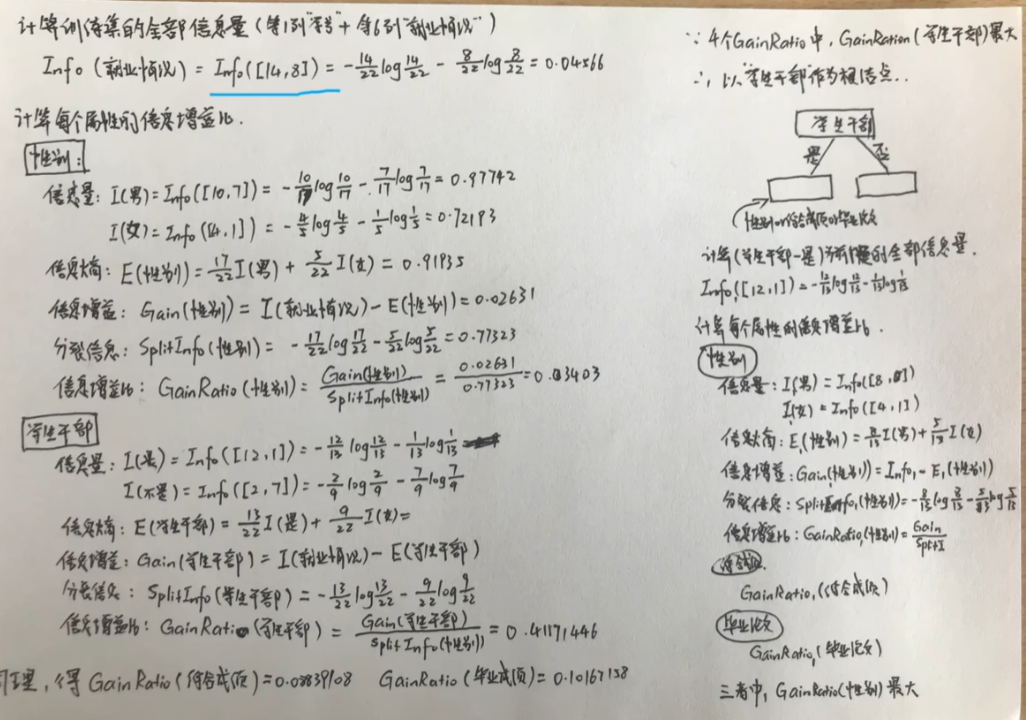 计算训练集的全部信息量(第1列"序号"+第6列"就业情况")
Info(就业情况) = Info([14,8]) = -14/22 log 14/22 - 8/22 log 8/22 = 0.04566
计算每个属性的信息增益比.
性别:
信息量: I(男)=Info([10,7]) = -10/17 log 10/17 - 7/17 log 7/17 = 0.97742
I(女)=Info([4,1]) = -4/5 log 4/5 - 1/5 log 1/5 = 0.72193
信息熵: E(性别) = 17/22 I(男) + 5/22 I(女) = 0.91935
信息增益: Gain(性别) = I(就业情况) - E(性别) = 0.02631
分裂信息: SplitInfo(性别) = -17/22 log 17/22 - 5/22 log 5/22 = 0.77323
信息增益比: GainRatio(性别) = Gain(性别)/SplitInfo(性别) = 0.02631/0.77323 = 0.03403
学生干部
信息量: I(是) = Info([12,1]) = -12/13 log 12/13 - 1/13 log 1/13
I(不是) = Info([2,7]) = -2/9 log 2/9 - 7/9 log 7/9
信息熵: E(学生干部) = 13/22 I(是) + 9/22 I(女) =
信息增益: Gain(学生干部) = I(就业情况) - E(学生干部)
分裂信息: SplitInfo(学生干部) = -13/22 log 13/22 - 9/22 log 9/22
信息增益比: GainRatio(学生干部) = Gain(学生干部)/SplitInfo(性别) = 0.41171446
同理, 得 GainRatio(综合成绩) = 0.08839108 GainRatio(毕业成绩) = 0.10167138
∵ 4个GainRatio中, GainRation(学生干部)最大
∴, 以"学生干部"作为根结点..
学生干部
是 否
性别or综合成绩or毕业论文
计算(学生干部-是)的全部信息量.
Info₁([12,1]) = -12/13 log 12/13 - 1/13 log 1/13
计算每个属性的信息增益比.
性别
信息量: I₁(男) = Info([8,0])
I₁(女) = Info([4,1])
信息熵: E₁(性别) = 8/13 I(男) + 5/13 I(女)
信息增益: Gain(性别) = Info₁ - E₁(性别)
分裂信息: SplitInfo₁(性别) = -8/13 log 8/13 - 5/13 log 5/13
信息增益比: GainRatio₁(性别) = Gain/SplitI
综合成绩
GainRatio₁(综合成绩)
毕业论文
GainRatio₁(毕业论文)
三者中, GainRatio(性别)最大